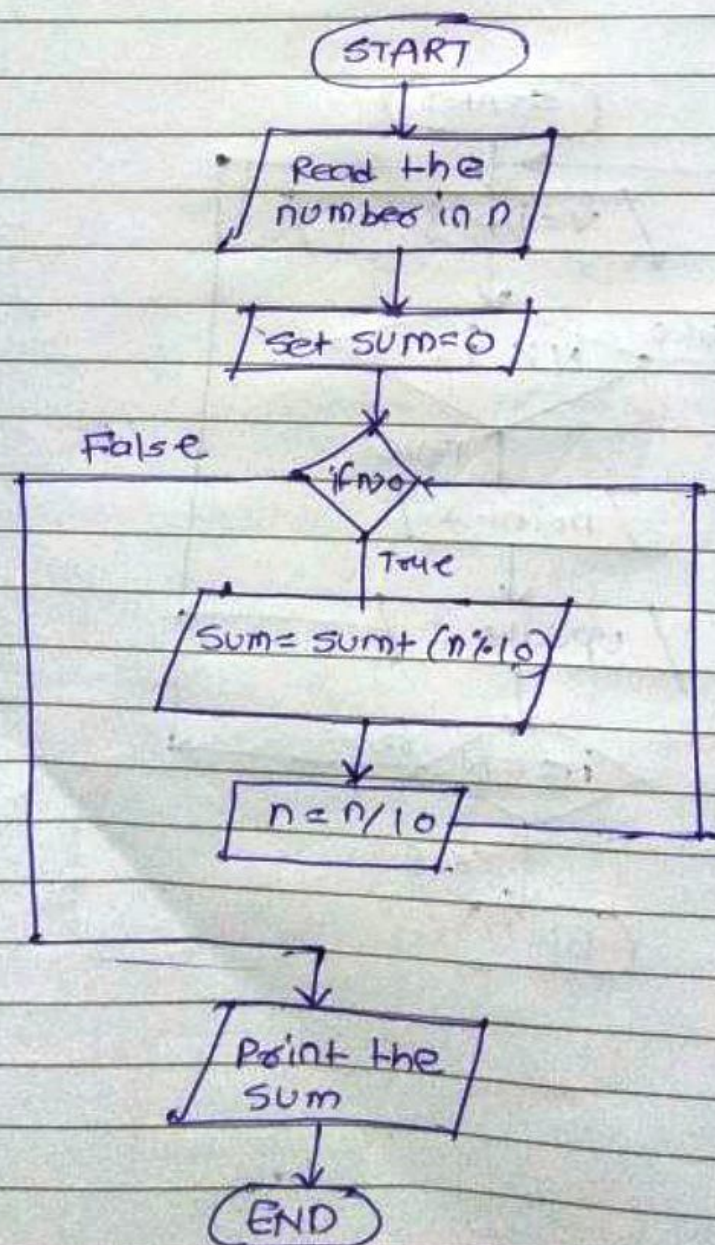 START
Read the
number in n
Set sum=0
False
if n>0
True
Sum= sum+ (n%10)
n = n/10
Print the
sum
END